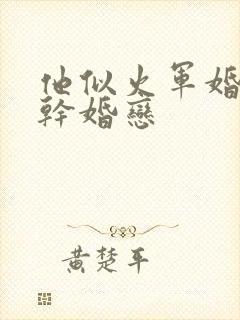 他似火軍婚
幹婚戀
黄楚平